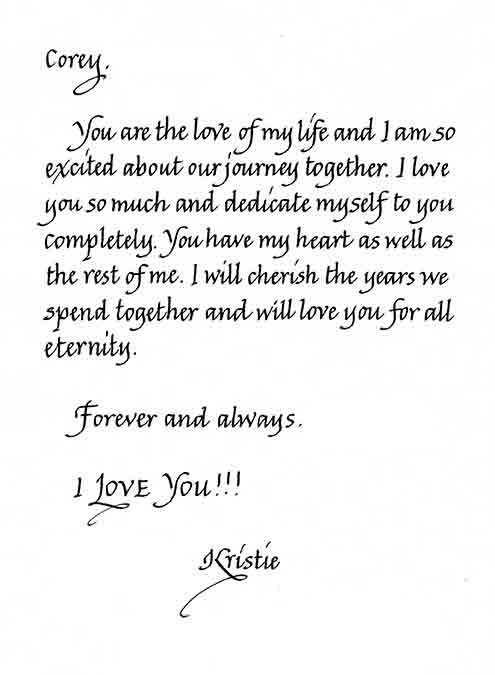 Corey,
You are the love of my life and I am so
excited about our journey together. I love
you so much and dedicate myself to you
completely. You have my heart as well as
the rest of me. I will cherish the years we
spend together and will love you for all
eternity.
Forever and always.
I LOVE YOU!!!
Kristie